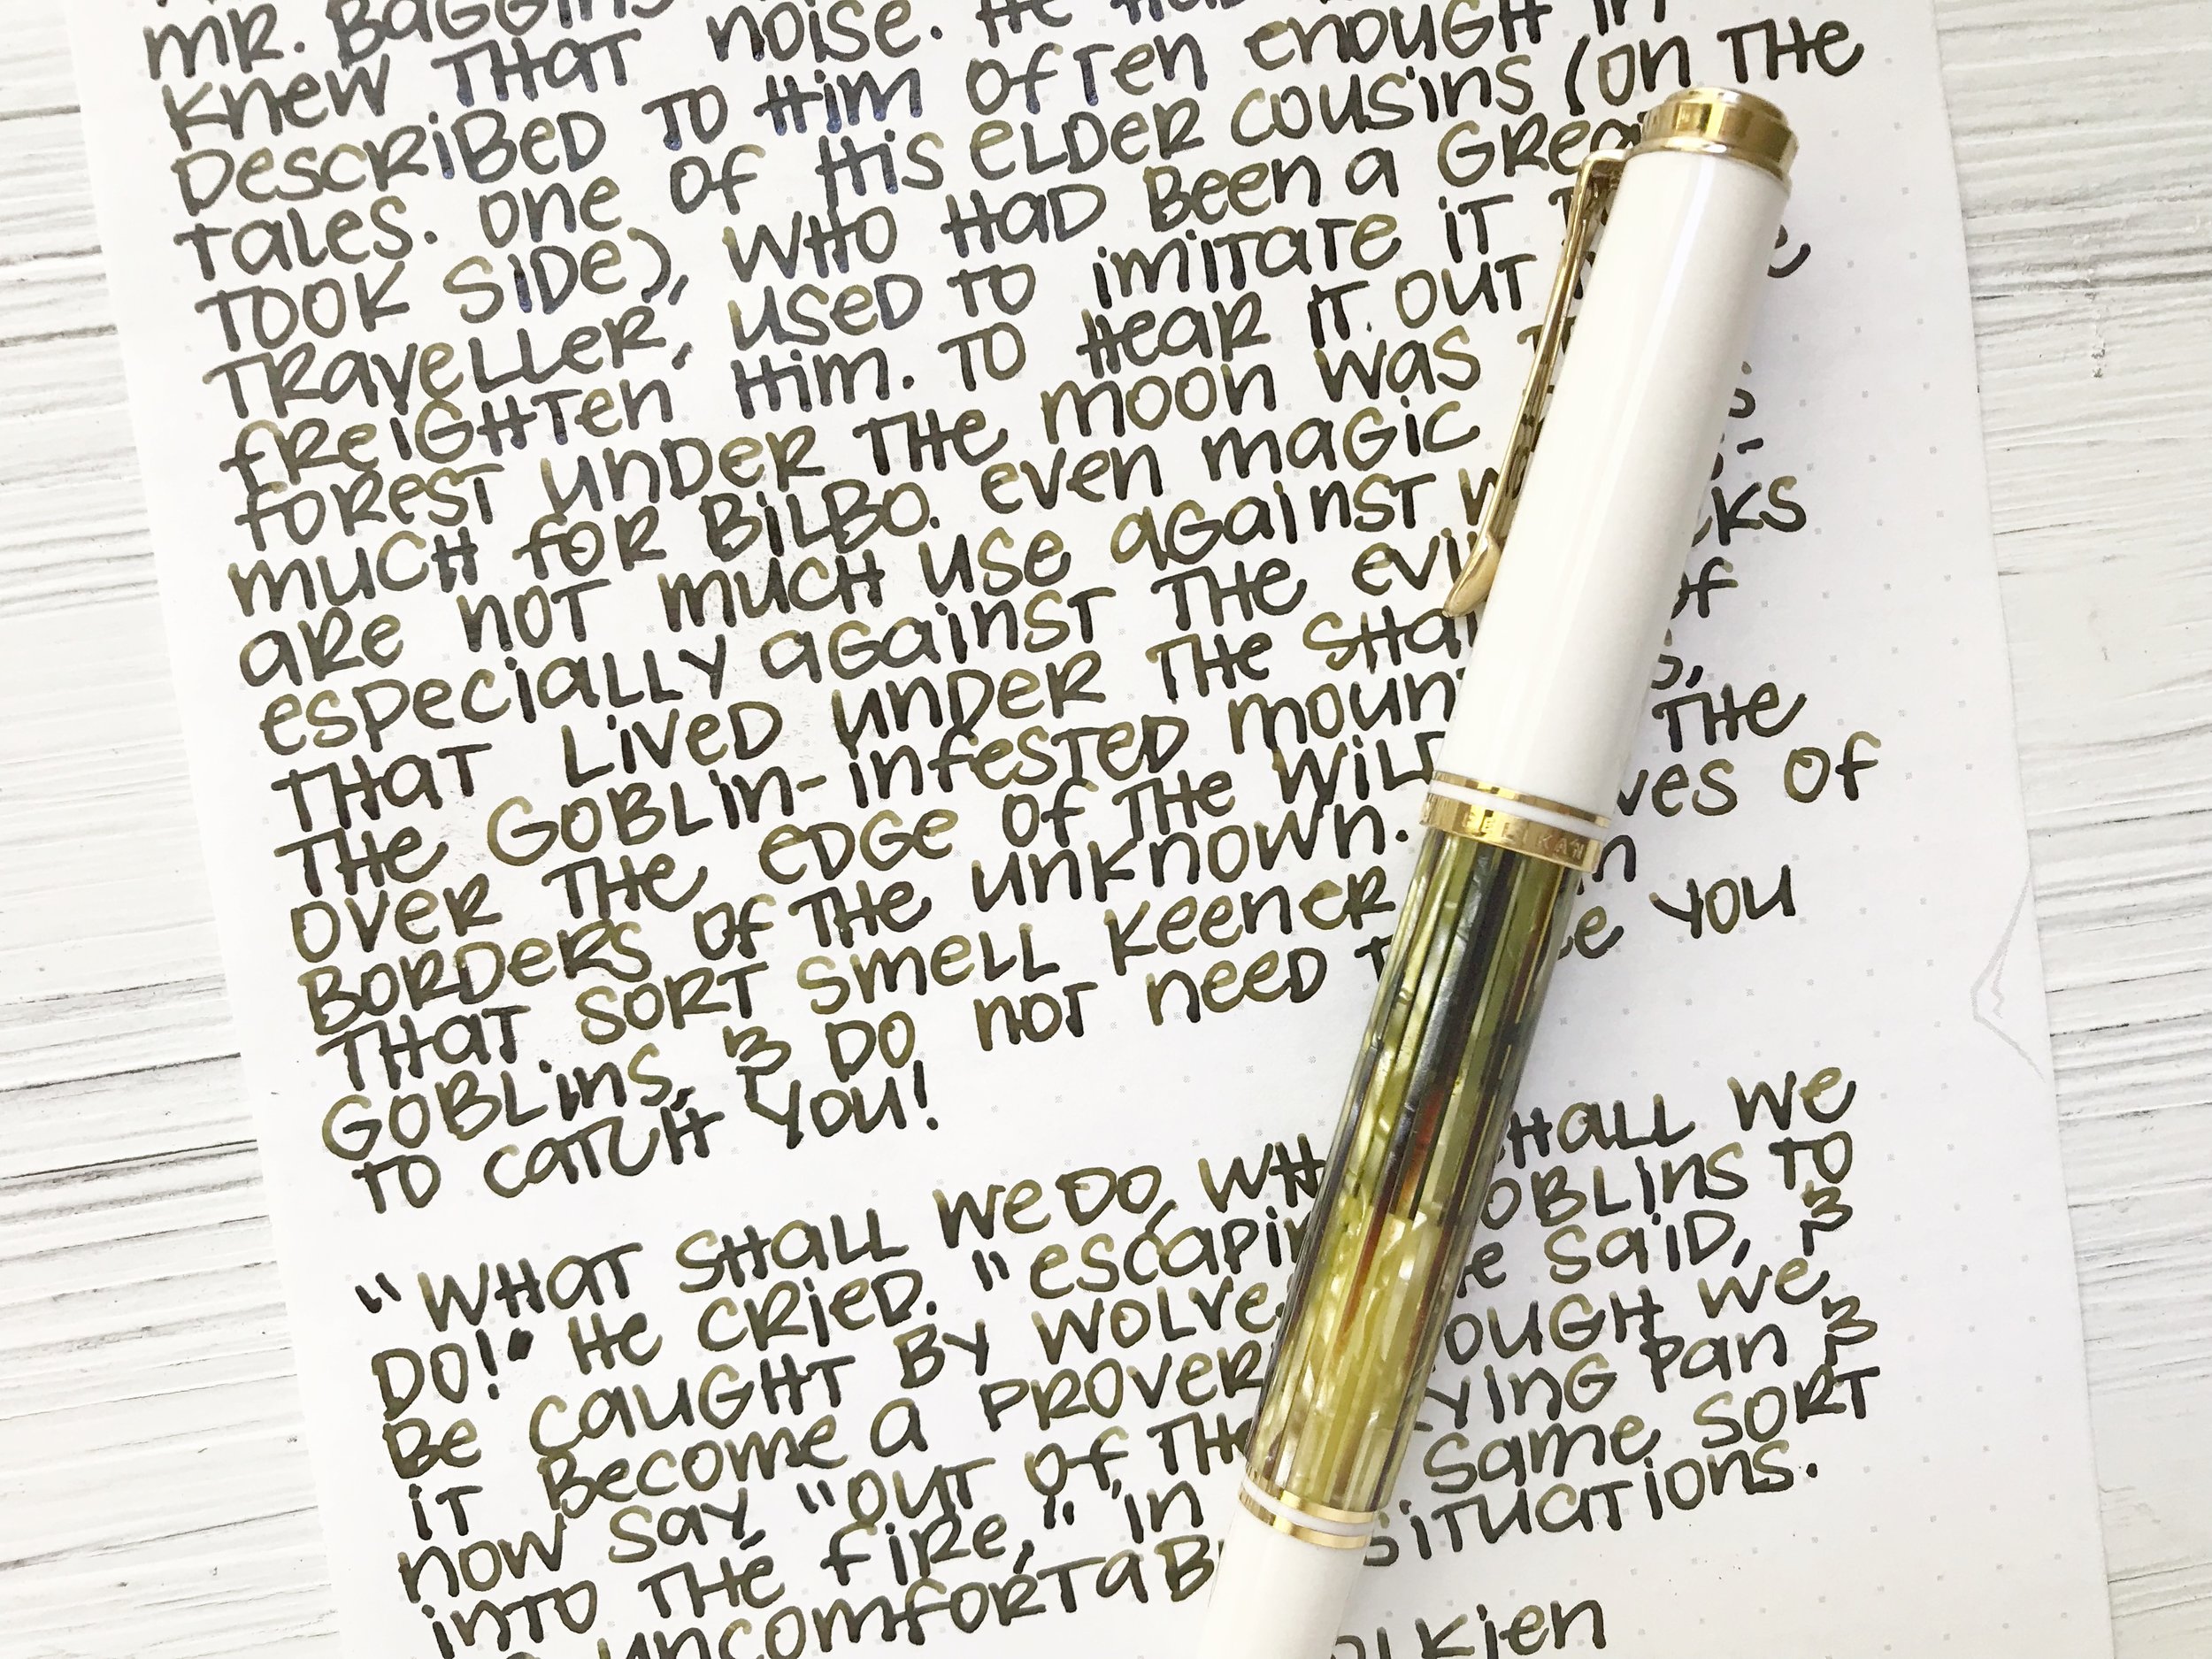 mr. Baggins
knew that noise. He had
described to him often enough in
tales. one of his elder cousins (on the
took side), who had been a great
traveller, used to imitate it
freighten him. to hear it out
forest under the moon was
much for Bilbo. even magic
are not much use against
especially against the evil packs
that lived under the of
the goblin-infested
over the edge of the wild the
borders of the unknown. wolves of
that sort smell keener
goblins, & do not need see you
to catch you!
"what shall we do, shall we
do!" he cried. "escaping goblins to
be caught by wolves he said, &
it become a proverb though we
now say "out of the frying pan &
into the fire," in same sort
uncomfortable situations.
Tolkien
PELIKAN